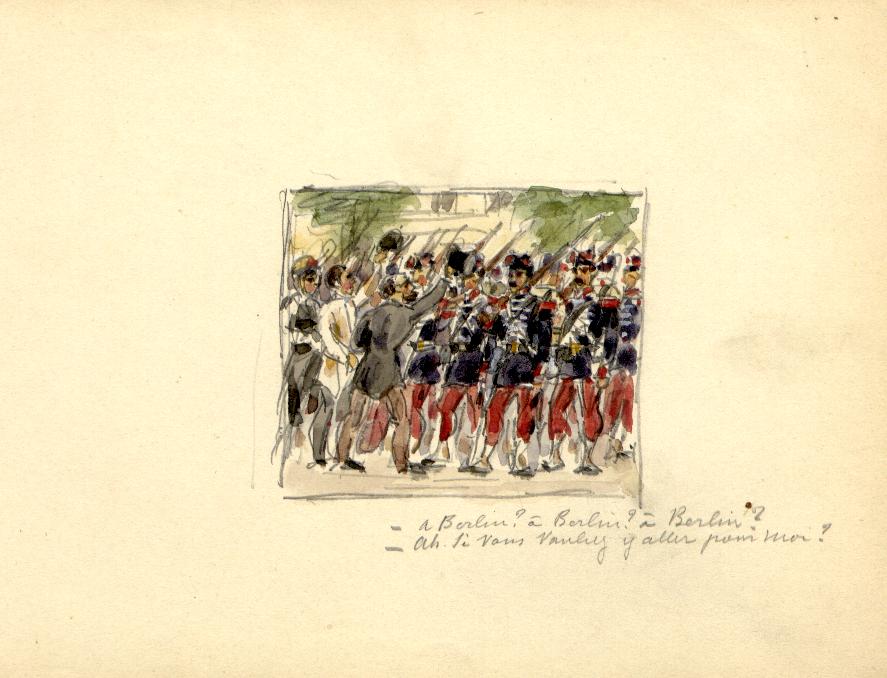 - A Berlin? à Berlin? à Berlin?
- Ah. Si vous vouliez y aller pour moi?